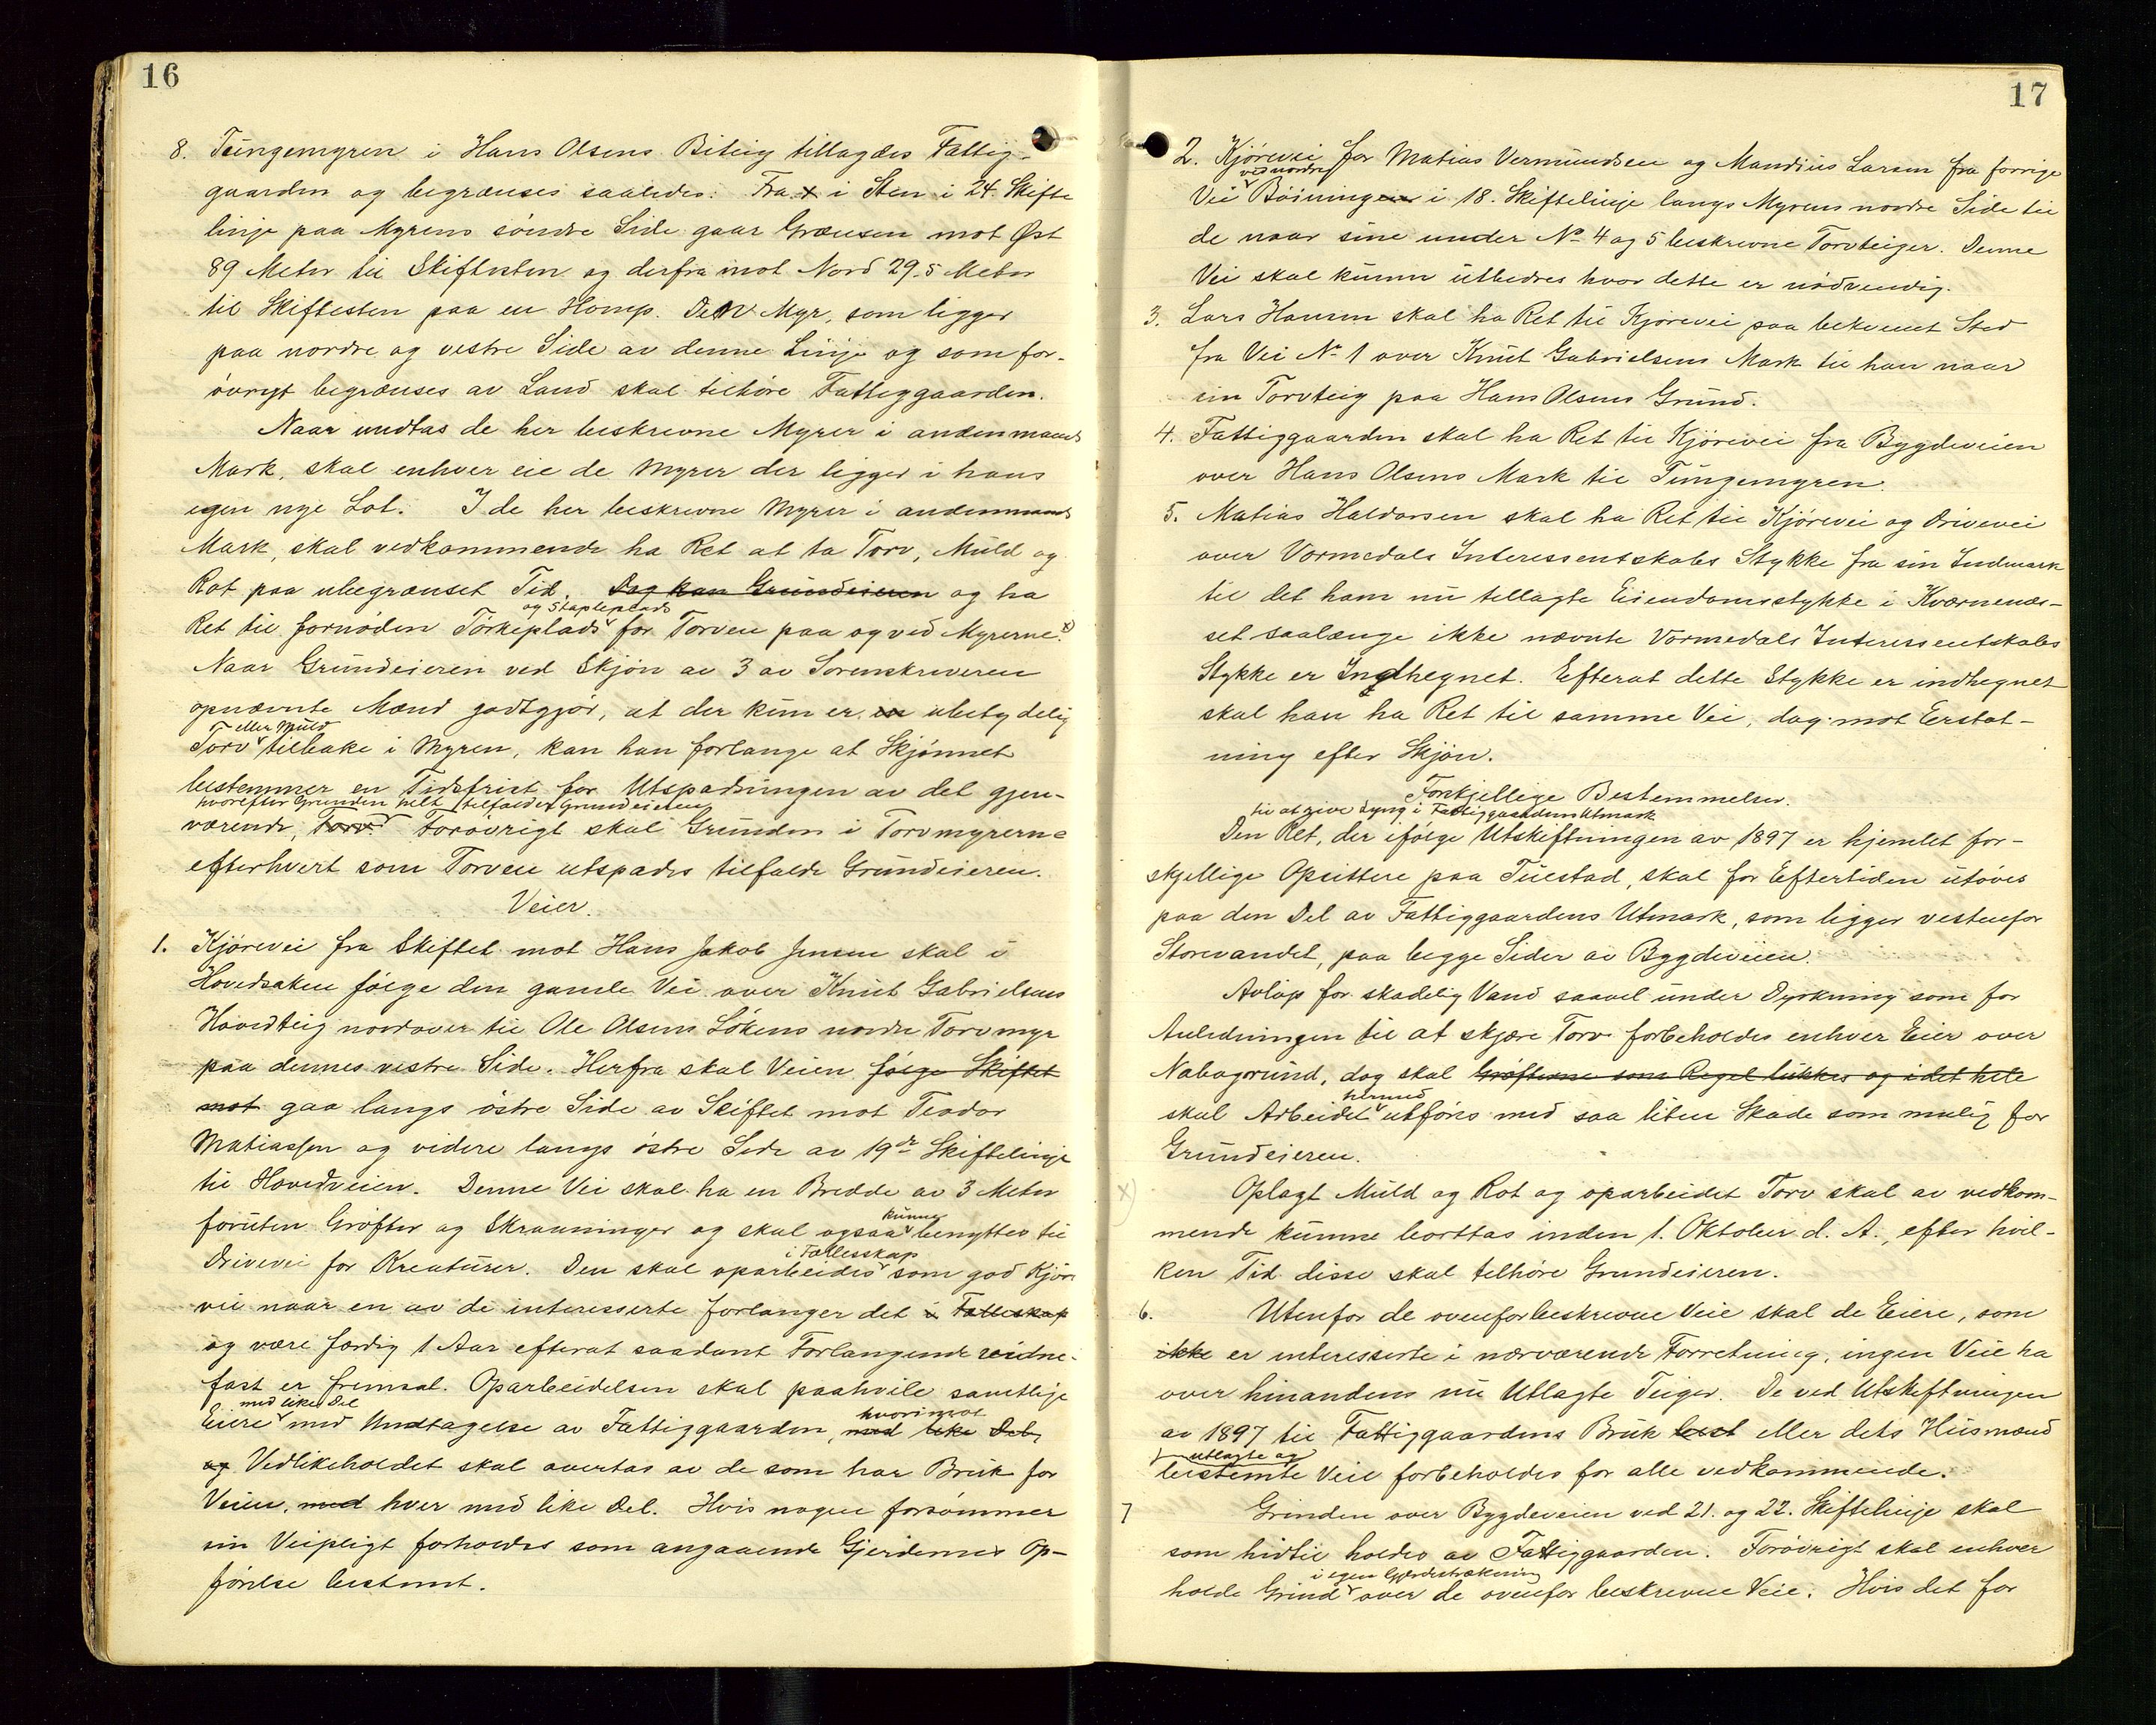 16
8. Tungemyren i Hans Olsens Biteig tillagdes Fattig-
gaarden og begrænses saaledes: Fra x i Sten i 24 Skifte
linje paa Myrens søndre Side gaar Grænsen mot Øst
89 Meter til Skiftesten og derfra mot Nord 29.5 Meter
til Skiftesten paa en Homp. Den Myr, som ligger
paa nordre og vestre Side av denne Linje og som for-
øvrigt begrænses av Land skal tilhøre Fattiggaarden.
Naar undtas de her beskrevne Myrer i andenmands
Mark, skal enhver eie de Myrer der ligger i hans
egen nye Lot. I de her beskrevne Myrer i andenmands
Mark, skal vedkommende ha Ret at ta Torv, Muld og
Rot paa ubegrænset Tid. Dog kan Grundeieren og ha
og Stapleplads
Ret til fornøden Tørkeplads for Torven paa og ved Myrerne. x)
Naar Grundeieren ved Skjøn av 3 av Sorenskriveren
opnævnte Mænd godtgjør, at der kun er en ubetydelig
eller Muld
Torv tilbake i Myren, kan han forlange at Skjønnet
bestemmer en Tidsfrist for Utspadningen av det gjen-
hvorefter Grunden helt tilfalder Grundeieren
værende, Torv. Forøvrigt skal Grunden i Torvmyrerne
efterhvert som Torven utspades tilfalde Grundeieren.
Veier.
1. Kjørevei fra Skiftet mot Hans Jakob Jensen skal i
Hovedsaken følge den gamle Vei over Knut Gabrielsens
Hovedteig nordover til Ole Olsens Løkens nordre Torvmyr
paa dennes vestre Side. Herfra skal Veien følge Skiftet
mot gaa langs østre Side av Skiftet mot Teodor
Matiassen og videre langs østre Side av 19de Skiftelinje
til Hovedveien. Denne Vei skal ha en Bredde av 3 Meter
kunne
foruten Grøfter og Skraaninger og skal ogsaa benyttes til
i Fællesskap
Drivevei for Kreaturer. Den skal oparbeides som god Kjøre
vei naar en av de interesserte forlanger det i Fælleskap
og være færdig 1 Aar efterat saadant Forlangende vidne-
fast er fremsat. Oparbeidelsen skal paahvile samtlige
med like Del hvorimot
Eiere med Undtagelse av Fattiggaarden, med like Del,
og Vedlikeholdet skal overtas av de som har Bruk for
Veien, med hver med like Del. Hvis nogen forsømmer
sin Veipligt forholdes som angaaende Gjerdernes Op-
førelse bestemt.
17
2. Kjørevei for Matias Vermundsen og Mandius Larsen fra forrige
ved nordre
Vei Bøiningen i 18. Skiftelinje langs Myrens nordre Side til
de naar sine under No 4 og 5 beskrevne Torvteiger. Denne
Vei skal kunne utbedres hvor dette er nødvendig.
3. Lars Hansen skal ha Ret til Kjørevei paa bekvemt Sted
fra Vei No 1 over Knut Gabrielsens Mark til han naar
sin Torvteig paa Hans Olsens Grund.
4. Fattiggaarden skal ha Ret til Kjørevei fra Bygdeveien
over Hans Olsens Mark til Tungemyren.
5. Matias Haldorsen skal ha Ret til Kjørevei og Drivevei
over Vormedals Interessentskabs Stykke fra sin Indmark
til det ham nu tillagte Eiendomsstykke i Kværnenes-
set saalænge ikke nævnte Vormedals Interessentskabs
Stykke er Indhegnet. Efterat dette Stykke er indhegnet
skal han ha Ret til samme Vei, dog mot Erstat-
ning efter Skjøn.
Forskjellige Bestemmelser.
til at rive Lyng i Fattiggaardens Utmark
Den Ret, der ifølge Utskiftningen av 1897 er hjemlet for-
skjellige Opsittere paa Tuestad, skal for Eftertiden utøves
paa den Del av Fattiggaardens Utmark, som ligger vestenfor
Storevandet, paa begge Sider av Bygdeveien.
Avløp for skadelig Vand saavel under Dyrkning som for
Anledningen til at skjære Torv forbeholdes enhver Eier over
Nabogrund, dog skal Grøfterne som Regel lukkes og i det hele
hermed
skal Arbeidet utføres med saa liten Skade som mulig for
Grundeieren.
x) Oplagt Muld og Rot og oparbeidet Torv skal av vedkom-
mende kunne borttas inden 1. Oktober d. A., efter hvil-
ken Tid disse skal tilhøre Grundeieren.
6. Utenfor de ovenforbeskrevne Veie skal de Eiere, som
ikke er interesserte i nærværende Forretning, ingen Veie ha
over hinandens nu Utlagte Teiger. De ved Utskiftningen
av 1897 til Fattiggaardens Bruk best eller dets Husmænd
utlagte og
bestemte Veie forbeholdes for alle vedkommende.
7 Grinden over Bygdeveien ved 21. og 22. Skiftelinje skal
som hidtil holdes av Fattiggaarden. Forøvrigt skal enhver
i egen Gjerdestrækning
holde Grind over de ovenfor beskrevne Veie. Hvis det for